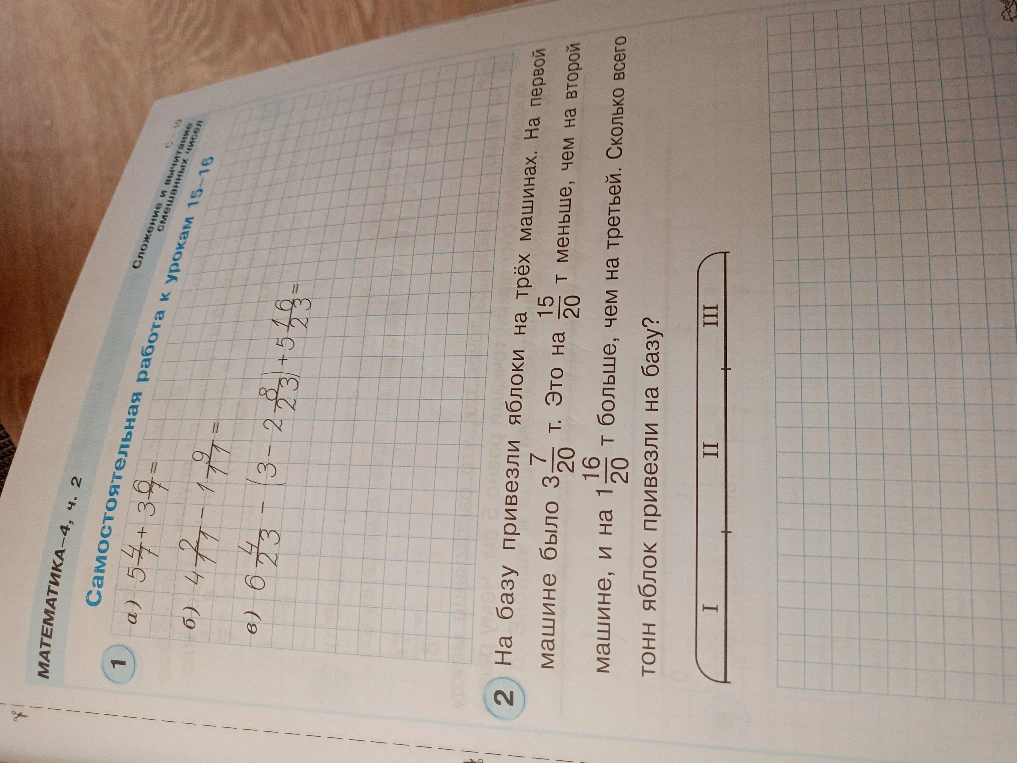 МАТЕМАТИКА–4, ч. 2
Сложение и вычитание
смешанных чисел
Самостоятельная работа к урокам 15–16
1
а) 5 4/7 + 3 6/7 =
б) 4 2/11 − 1 9/11 =
в) 6 4/23 − (3 − 2 8/23) + 5 16/23 =
2 На базу привезли яблоки на трёх машинах. На первой
машине было 3 7/20 т. Это на 15/20 т меньше, чем на второй
машине, и на 1 16/20 т больше, чем на третьей. Сколько всего
тонн яблок привезли на базу?
I II III